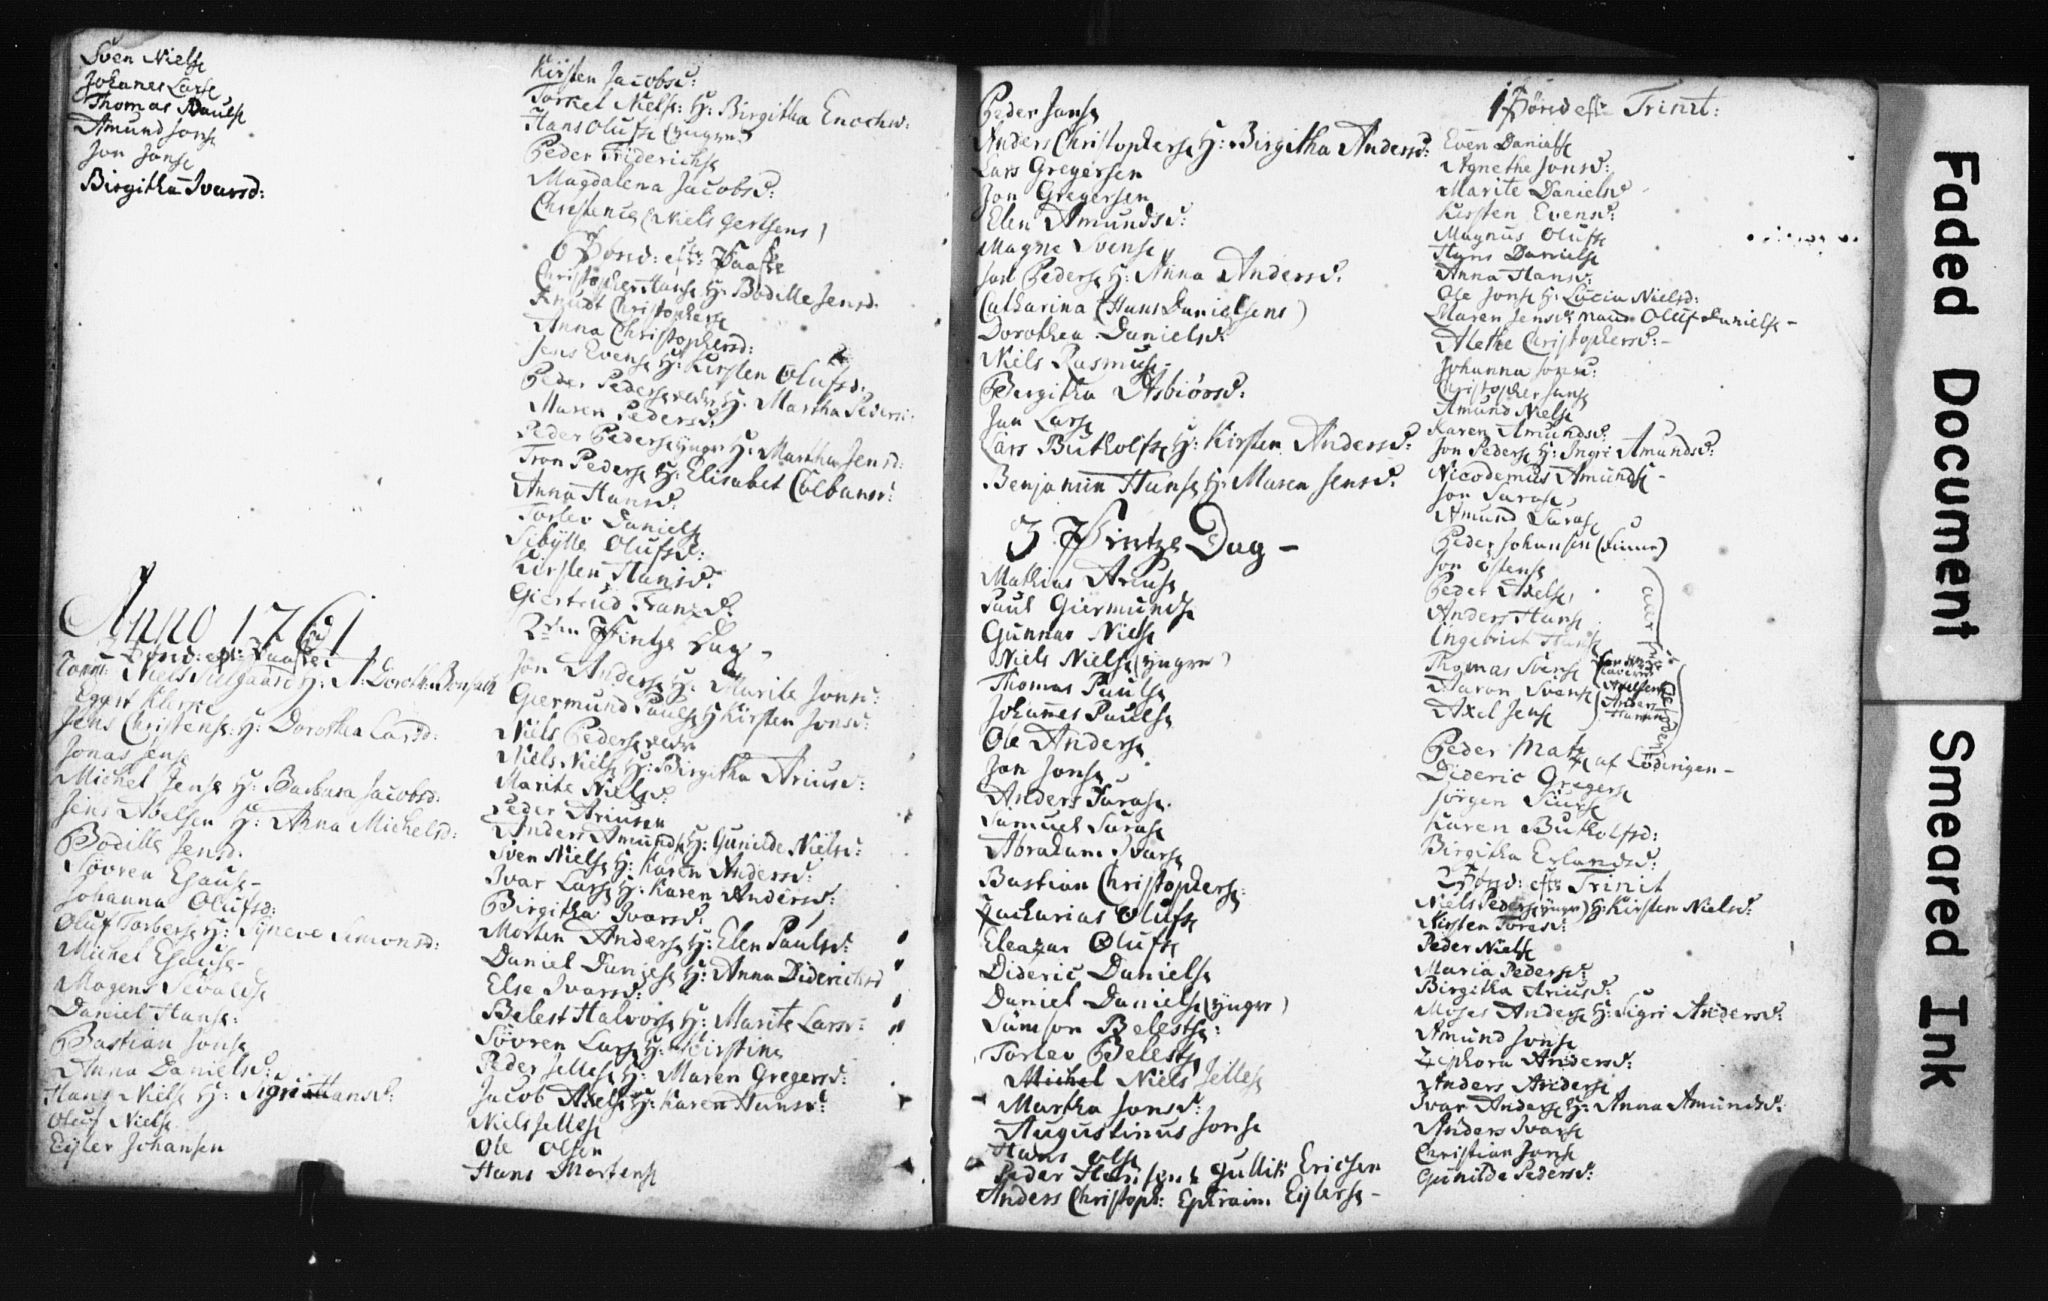 Sven Nielse
Johanes Larse
Thomas Paulse
Amund Jonse
Jon Jonse
Birgitha Ivarsd:
Anno 1761
Dond: eft: Paaske
Niels H: A: Doroth:
Eggert
Jens Christense H: Dorothea Larsd:
Jonas Jense
Michel Jense H: Barbara Jacobsd:
Jens Abelsen H: Anna Michelsd:
Bodille Jensd.
Sövren
Johanna Olufsd:
Oluf Torberse H: Syneve Simonsd:
Michel
Mogens Sivaldse
Daniel Hanse:
Bastian Jonse
Anna Danielsd:
Hans Nielse H: Sigri Hansd:
Oluf Nielse
Eyler Johansen
Kirsten Jacobsd:
Torkel Nielse: H: Birgitha Enochsd:
Hans Olufse (yngre)
Peder Friderichse
Magdalena Jacobsd:
Christense (Niels Gertsens)
6 Sönd: eft: Paaske
Christopher Hanse H: Bodille Jensd.
Knudt Christopherse
Anna Christophersd:
Jens Evense H: Kirsten Olufsd:
Peder Pederse ældre H: Martha Pedersd:
Maren Pedersd:
Peder Pederse yngre H: Martha Jensd:
Tron Pederse H: Elisabet Colbansd:
Anna Hansd.
Torlev Danielse
Sibylle Olufsd:
Kirsten Hansd:
Giertrud Franzd.
2den Pfintze Dag -
Jon Anderse H: Marite Jonsd:
Giermund Paulse H: Kirsten Jonsd:
Niels Pederse ældre
Niels Nielse H: Birgitha Ariusd:
Marite Nielsd:
Peder Ariusen
Anders Amundse H: Gunilde Nielsd:
Sven Nielse H: Karen Andersd:
Ivar Larse H: Karen Andersd:
Birgitha Ivarsd:
Morten Anderse H: Elen Paulsd:
Daniel Danielse H: Anna Diderichsd
Else Ivarsd:
Belest Halvorse H: Marite Larsd:
Sövren Larse H: Kirstine
Peder Jellese H: Maren Gregersd:
Jacob Axelse H: Karen Hansd:
Niels Jellese
Ole Olsen
Hans Mortense
Peder Janse
Anders Christopherse H: Birgitha Andersd:
Lars Gregersen
Jon Gregersen
Elen Amundsd:
Magne Svense
Joel Pederse H: Anna Andersd.
Catharina (Hans Danielsens)
Dorothea Danielsd:
Niels Rasmuse
Birgitha Asbiörsd:
Jan Larse
Lars Butholfse H: Kirsten Andersd:
Benjamin Hanse H: Maren Jensd.
3 Pfintze Dag -
Mathias Ariuse
Paul Giermundse
Gunnar Nielse
Niels Nielse (yngre)
Thomas Paulse
Johannes Paulse
Ole Anderse
Jon Jonse
Anders Jurase.
Samuel Jurase
Abraham Ivarse
Bastian Christopherse
Zacharias Olufse
Eleazar Olufse
Dideric Danielse
Daniel Danielse (yngre)
Samson Belestse:
Torlev Belestse
Michel Niels Jellese
Martha Jonsd:
Augustinus Jonse
Hans Olse
Peder Hansen & Gullik Ericsen
Anders Christoph: Ephraim Eylerse -
1 Sönd eft: Trinit:
Even Danielse
Agnethe Jonsd:
Marite Danielsd
Kirsten Evensd:
Magnus Olufse
Hans Danielse
Anna Hansd:
Ole Jonse H: Lucia Nielsd:
Maren Jensd: Oluf Danielse -
Alethe Christophersd: -
Johanna Jonsd:
Christopher Janse
Amund Nielse
Karen Amundsd:
Jon Pederse H: Ingri Amundsd:
Nicodemus Amundse -
Jon Jurase
Amund Jurase
Peder Johansen (Finne)
Jon Östense
Peder Axelse,
Anders Hanse
Ingebrict Hanse
Thomas Svense
Aaron Svense
Axel Jense
Peder Matz: af Lödingen -
Dideric Gregerse
Jörgen Siurse
Karen Butholfsd:
Birgitha Erlandsd:
2 Sönd: eft: Trinit
Niels Pederse (yngre) H: Kirsten Nielsd:
Kirsten Toresd:
Peder Nielse
Maria Pedersd:
Birgitha Ariusd:
Moses Anderse H: Sigri Andersd:
Amund Jonse
Zephora Andersd:
Anders Anderse
Ivar Anderse H: Anna Amundsd:
Anders Ivarse
Christian Janse
Gunilde Pedersd:
Faded Document
Smeared Ink